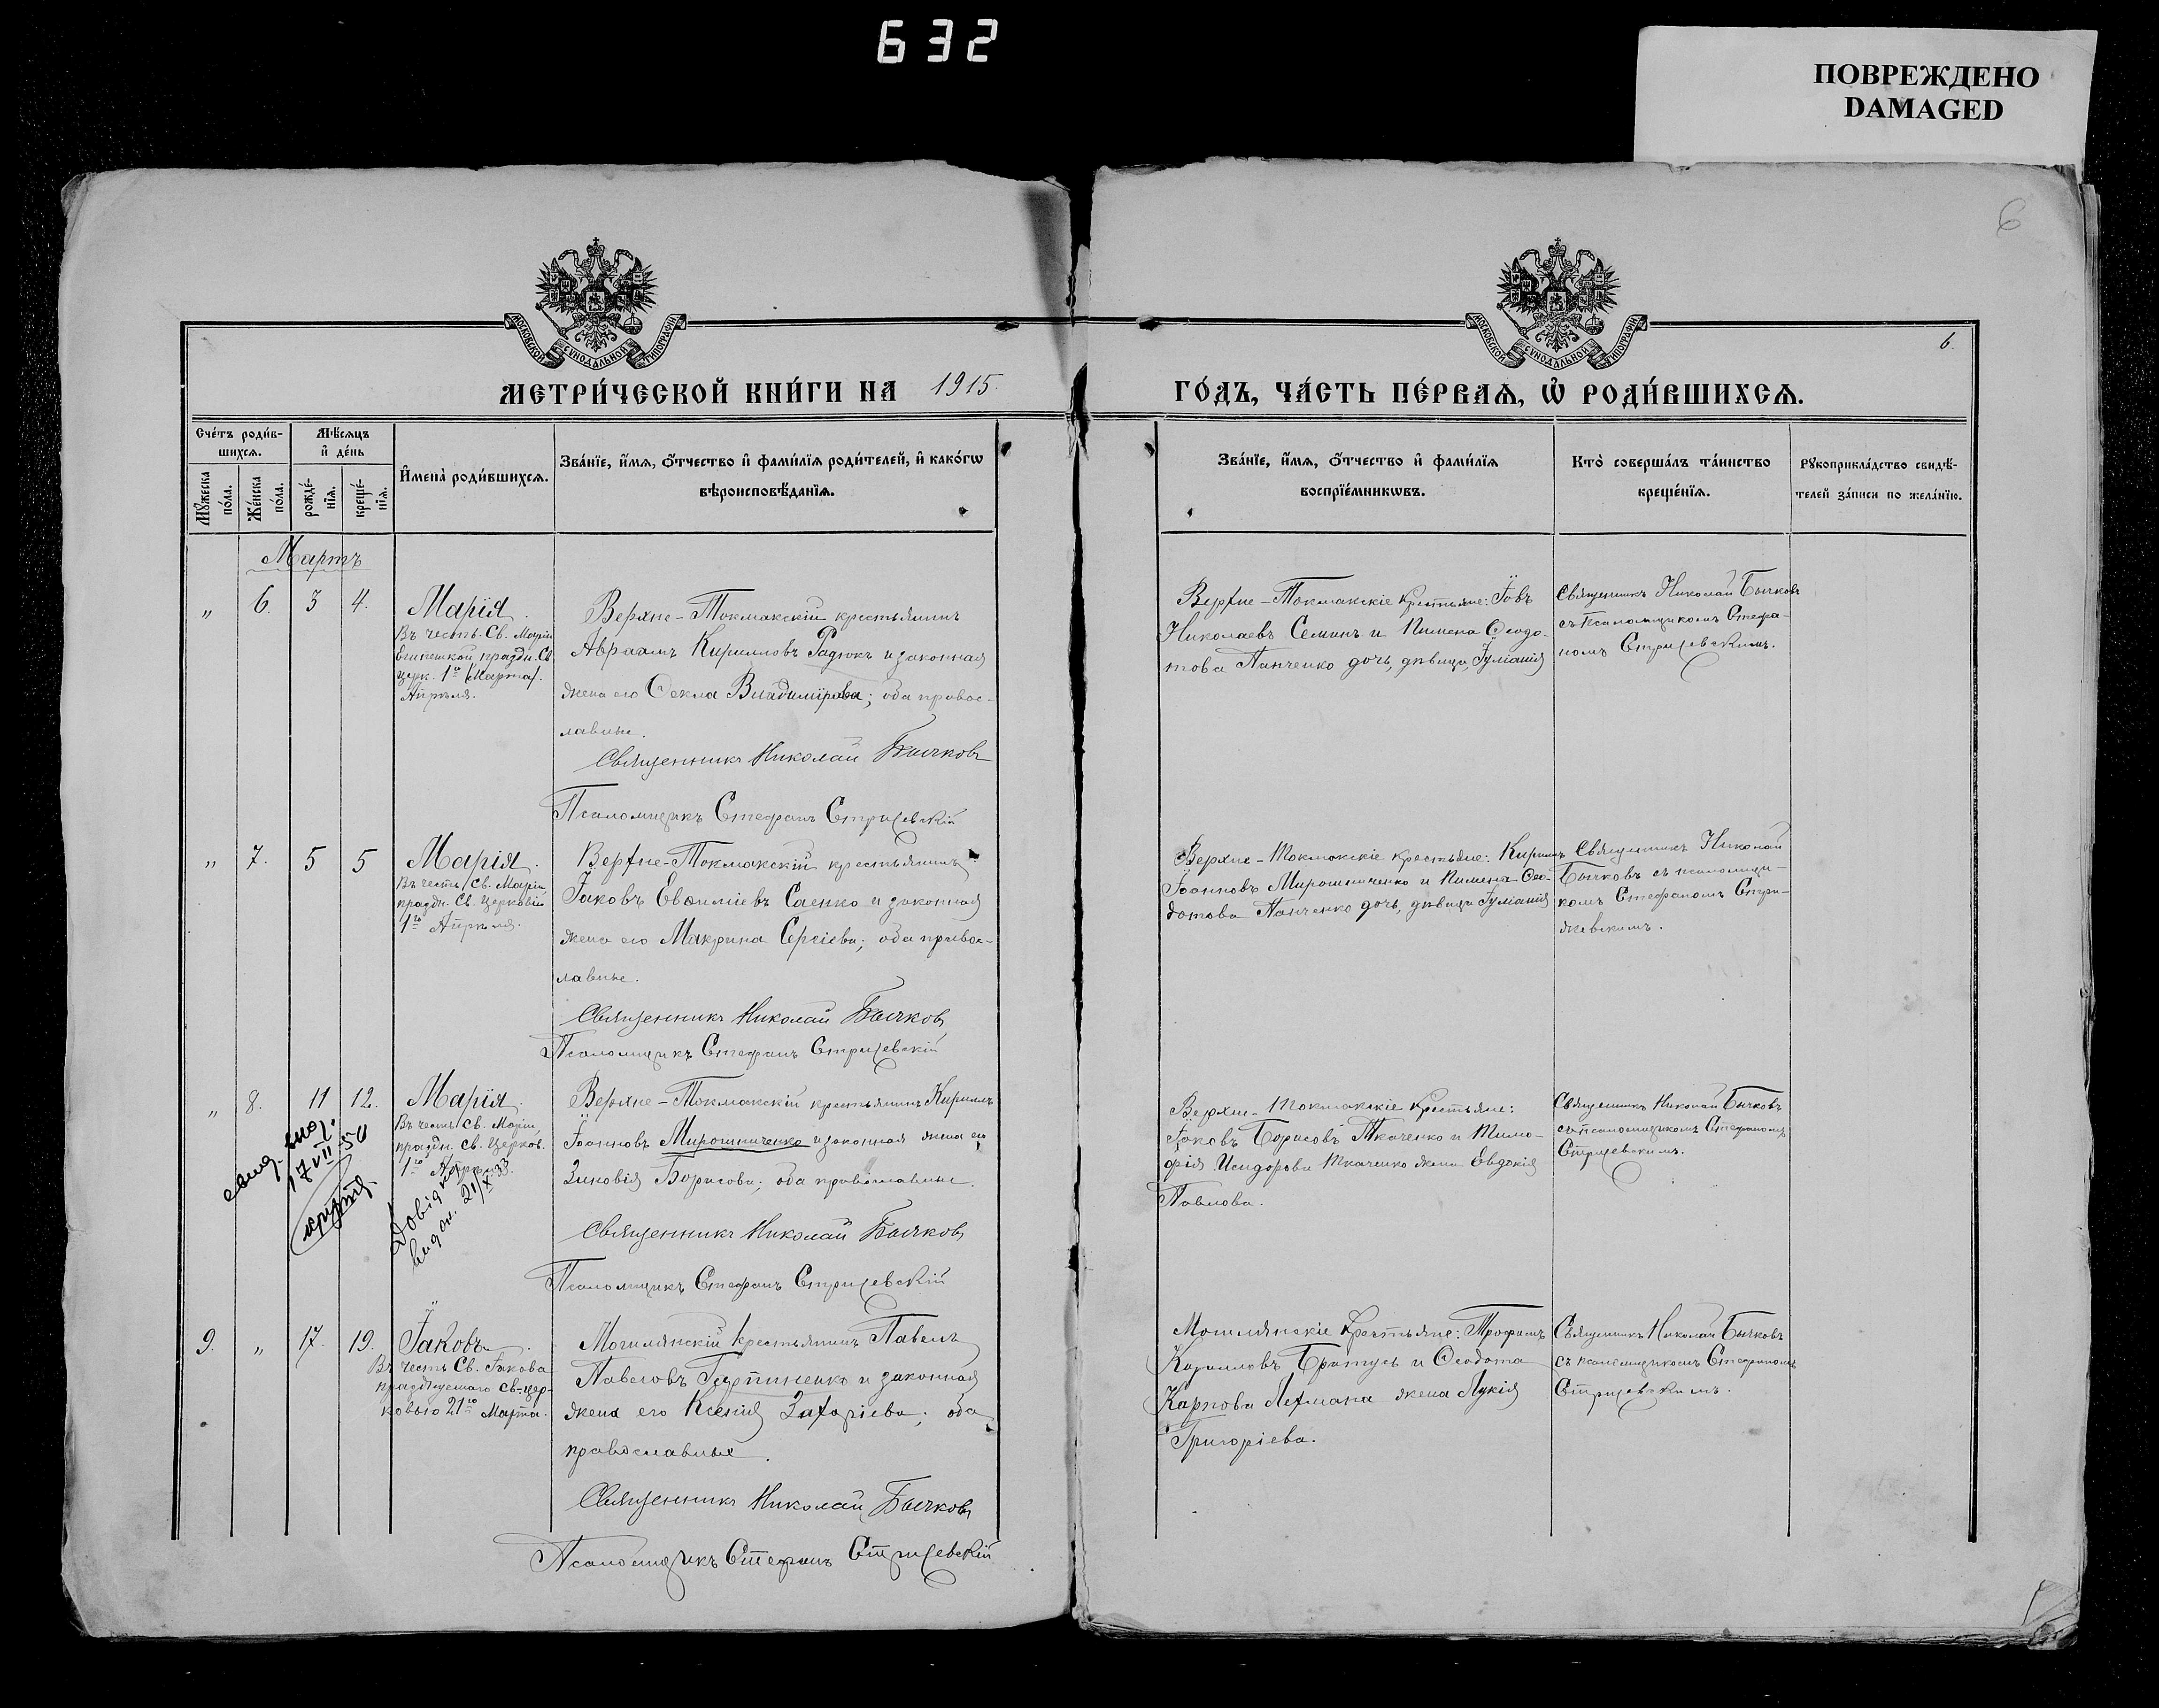 632
ПОВРЕЖДЕНО
DAMAGED
6
МОСКОВСКОЙ СѴНОДАЛЬНОЙ ТИПОГРАФІИ
МОСКОВСКОЙ СѴНОДАЛЬНОЙ ТИПОГРАФІИ
6.
МЕТРИ́ЧЕСКОЙ КНИ́ГИ НА 1915.
ГО́ДЪ, ЧА́СТЬ ПЕ́РВАѦ, Ѡ҆ РОДИ́ВШИХСѦ.
Сче́тъ роди́в-
шихсѧ.
Мѣ́сѧцъ
и҆ де́нь
Мꙋ́жеска
по́ла.
Же́нска
по́ла.
рожде́-
нїѧ.
креще́-
нїѧ.
И҆мена̀ роди́вшихсѧ.
Зва́нїе, и҆́мѧ, ѻ҆́тчество и҆ фами́лїѧ роди́телей, и҆ како́гѡ
вѣроисповѣ́данїѧ.
Зва́нїе, и҆́мѧ, ѻ҆́тчество и҆ фами́лїѧ
воспрїе́мникѡвъ.
Кто̀ соверша́лъ та́инство
креще́нїѧ.
Рꙋкоприкла́дство свидѣ́-
телей за́писи по жела́нїю.
Мартъ
„ 6. 3 4.
Марія.
Въ честь Св. Маріи
Египетской праздн. Св
церк. 1го /Марта/.
Апрѣля.
Верхне-Токмакскій крестьянинъ
Авраамъ Кирилловъ Радюкъ и законная
жена его Ѳекла Владимірова; оба правос-
лавные.
Священникъ Николай Бычковъ
Псаломщикъ Стефанъ Стрижевскій
Верхне-Токмакскіе крестьяне: Іовъ
Николаевъ Семинъ и Пимена Ѳеодо-
това Панченко дочь, дѣвица, Іуліанія
Священникъ Николай Бычковъ
съ псаломщикомъ Стефа-
номъ Стрижевскимъ.
„ 7. 5 5
Марія.
Въ честь Св. Маріи,
праздн. Св. Церковію
1го Апрѣля.
Верхне-Токмакскій крестьянинъ
Іаковъ Евѳиміевъ Саенко и законная
жена его Макрина Сергіева; оба правос-
лавные.
Священникъ Николай Бычковъ
Псаломщикъ Стефанъ Стрижевскій
Верхне-Токмакскіе крестьяне: Кириллъ
Іоанновъ Мирошниченко и Пимена Ѳео-
дотова Панченко дочь, дѣвица Іуліанія
Священникъ Николай
Бычковъ съ псаломщи-
комъ Стефаномъ Стри-
жевскимъ.
„ 8. 11 12.
Марія.
Въ честь Св. Маріи,
праздн. Св. Церков.
1го Апрѣля.
17 VII 50
21/X 33
Верхне-Токмакскій крестьянинъ Кириллъ
Іоанновъ Мирошниченко и законная жена его
Зиновія Борисова; оба православные.
Священникъ Николай Бычковъ
Псаломщикъ Стефанъ Стрижевскій
Верхне-Токмакскіе крестьяне:
Іаковъ Борисовъ Ткаченко и Тимо-
фія Исидорова Ткаченко жена Евдокія
Павлова.
Священникъ Николай Бычковъ
съ псаломщикомъ Стефаномъ
Стрижевскимъ.
9. „ 17. 19.
Іаковъ.
Въ честь Св. Іакова
празднуемаго Св. Цер-
ковью 21го Марта.
Могилянскій крестьянинъ Павелъ
Павловъ и законная
жена его Ксенія Захаріева; оба
православные.
Священникъ Николай Бычковъ
Псаломщикъ Стефанъ Стрижевскій
Могилянскіе крестьяне: Трофимъ
Кирилловъ Братусь и Ѳеодота
Карпова Лехмана жена Лукія
Григоріева.
Священникъ Николай Бычковъ
съ псаломщикомъ Стефаномъ
Стрижевскимъ.